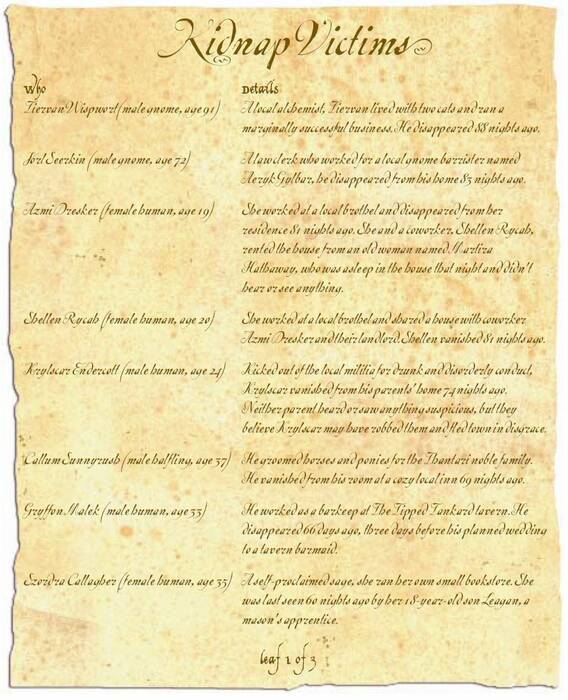 Kidnap Victims
Who Details
Tiervan Wispwort (male gnome, age 91) A local alchemist, Tiervan lived with two cats and ran a
marginally successful business. He disappeared 88 nights ago.
Jorl Seerkin (male gnome, age 72) A law clerk who worked for a local gnome barrister named
Aeryk Gylbar, he disappeared from his home 83 nights ago.
Azmi Dresker (female human, age 19) She worked at a local brothel and disappeared from her
residence 81 nights ago. She and a coworker, Shellen Rycah,
rented the house from an old woman named Martira
Hathaway, who was asleep in the house that night and didn't
hear or see anything.
Shellen Rycah (female human, age 20) She worked at a local brothel and shared a house with coworker
Azmi Dresker and their landlord. Shellen vanished 81 nights ago.
Krylscar Endercott (male human, age 24) Kicked out of the local militia for drunk and disorderly conduct,
Krylscar vanished from his parents' home 74 nights ago.
Neither parent heard or saw anything suspicious, but they
believe Krylscar may have robbed them and fled town in disgrace.
Callum Sunnyrush (male halfling, age 37) He groomed horses and ponies for the Thantari noble family.
He vanished from his room at a cozy local inn 69 nights ago.
Gryffon Malek (male human, age 33) He worked as a barkeep at The Tipped Tankard tavern. He
disappeared 66 days ago, three days before his planned wedding
to a tavern barmaid.
Ezordra Callagher (female human, age 35) A self-proclaimed sage, she ran her own small bookstore. She
was last seen 60 nights ago by her 18-year-old son Leagan, a
mason's apprentice.
leaf 1 of 3